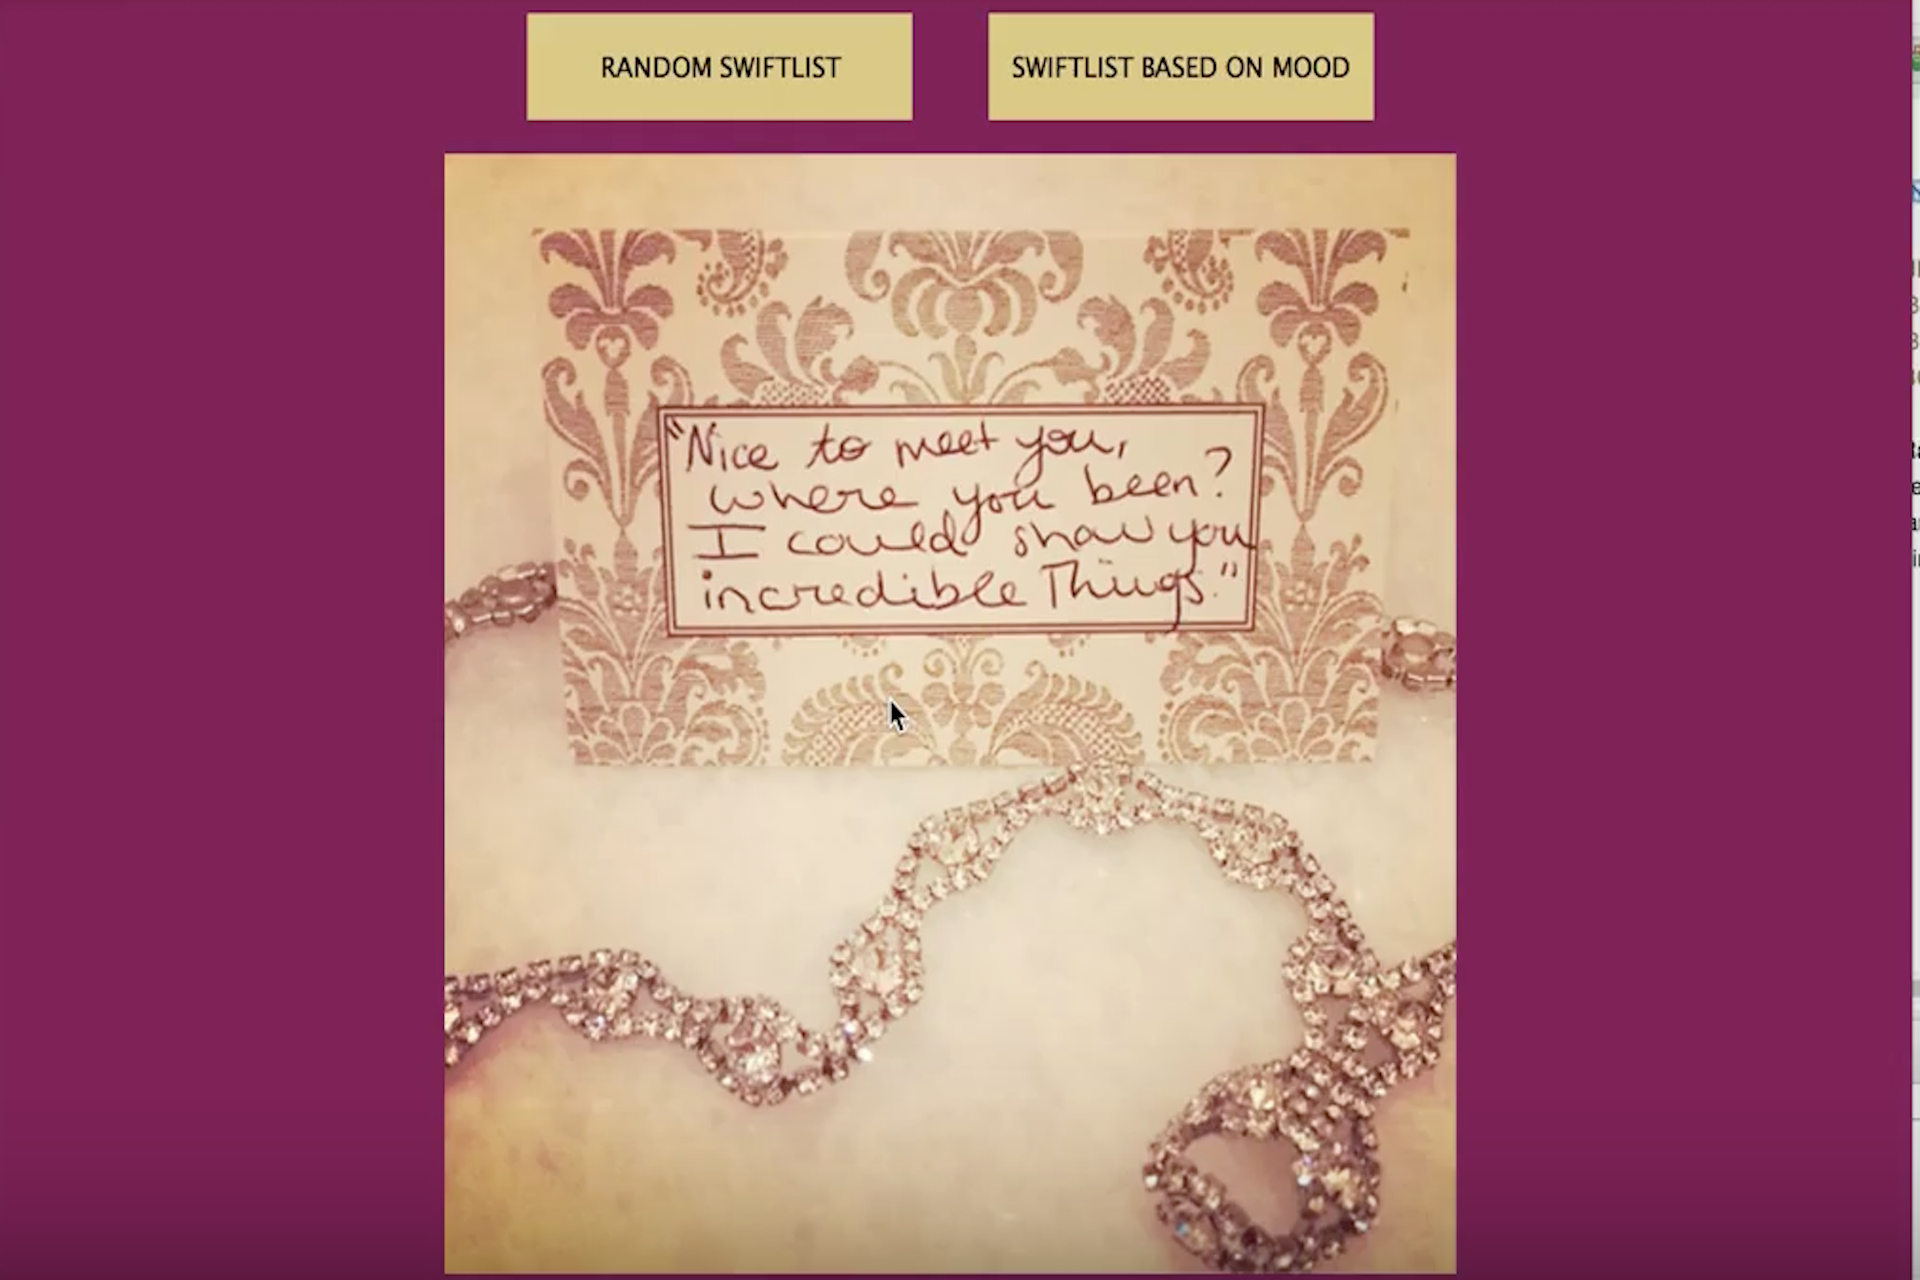 RANDOM SWIFTLIST
SWIFTLIST BASED ON MOOD
"Nice to meet you,
where you been?
I could show you
incredible Things."